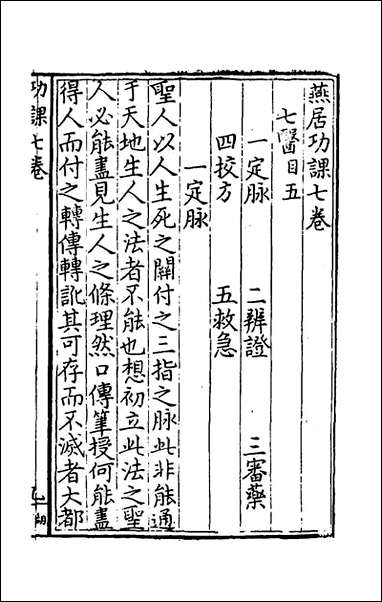 燕居功課七卷
七醫目五
一定脉　二辨證　三審藥
四按方　五救急
一定脉
聖人以人生死之關付之三指之脉此非能通
于天地生人之法者不能也想初立此法之聖
人必能盡見生人之條理然口傳筆授何能盡
得人而付之轉傳轉訛其可存而不滅者大都
功課七卷